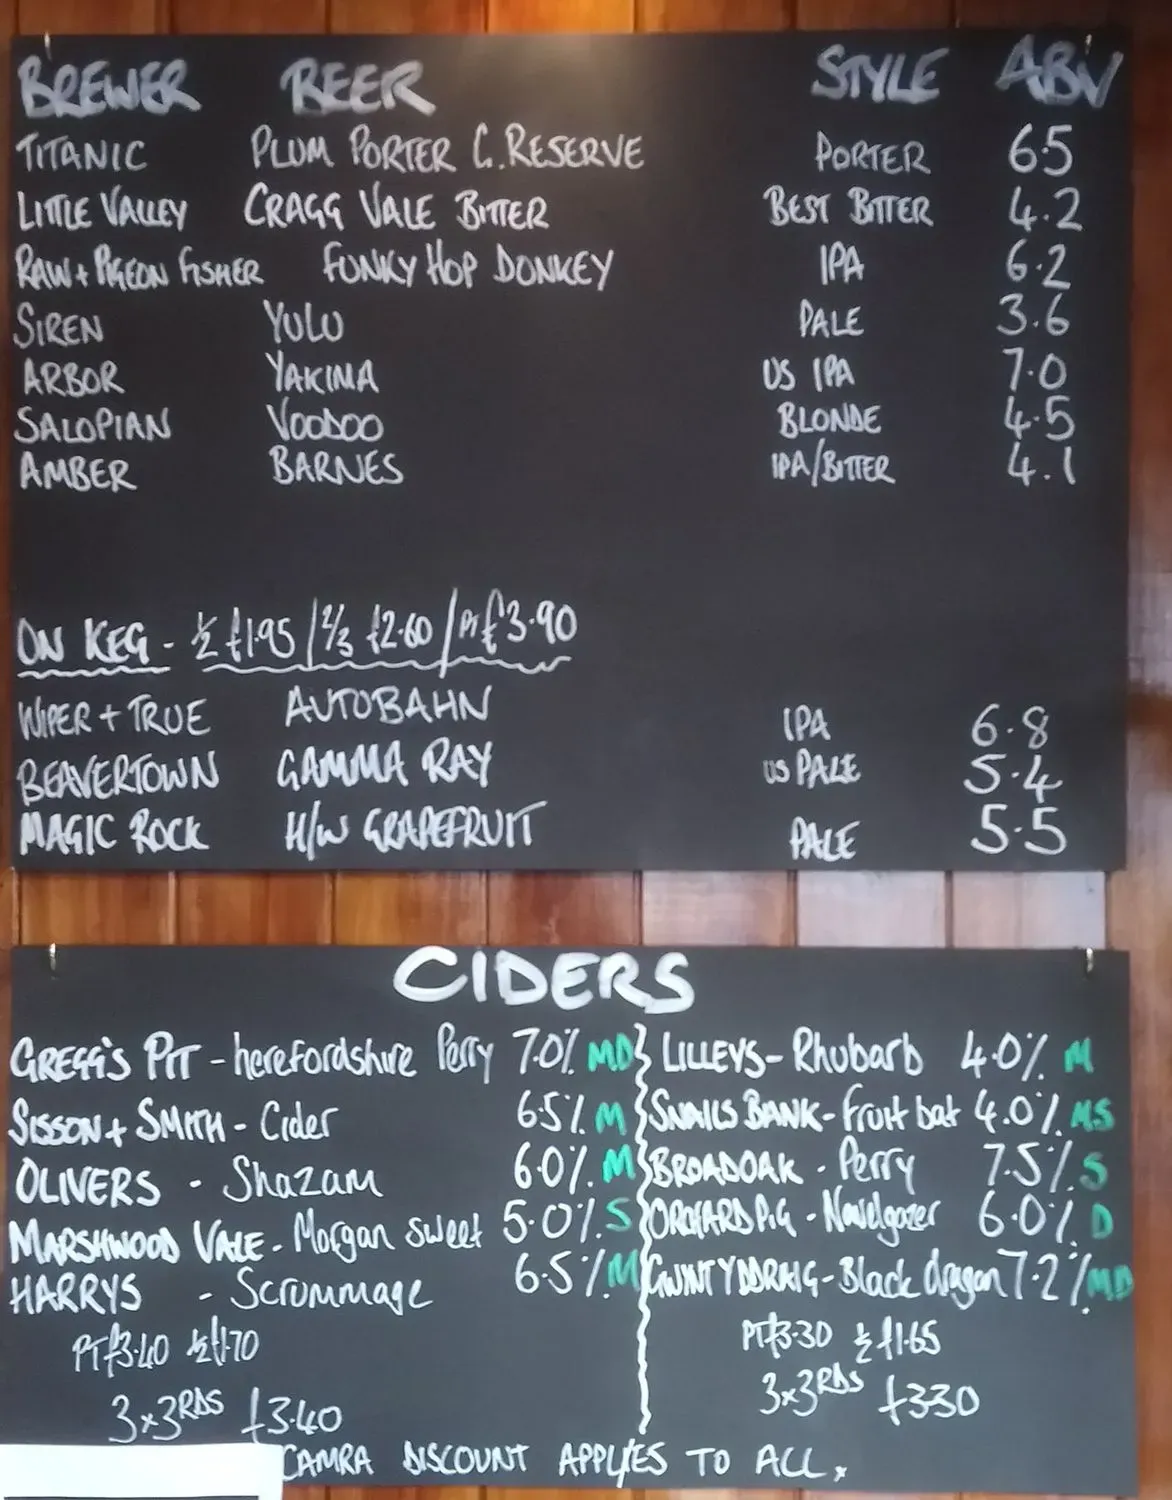 BREWER BEER STYLE ABV
TITANIC PLUM PORTER G. RESERVE PORTER 6.5
LITTLE VALLEY CRAGG VALE BITTER BEST BITTER 4.2
RAW + PIGEON FISHER FUNKY HOP DONKEY IPA 6.2
SIREN YULU PALE 3.6
ARBOR YAKIMA US IPA 7.0
SALOPIAN VOODOO BLONDE 4.5
AMBER BARNES IPA/BITTER 4.1
ON KEG - ½ £1.95 / 2/3 £2.60 / PT £3.90
WIPER + TRUE AUTOBAHN IPA 6.8
BEAVERTOWN GAMMA RAY US PALE 5.4
MAGIC ROCK H/W GRAPEFRUIT PALE 5.5
CIDERS
GREGG'S PIT - herefordshire Perry 7.0% MD
SISSON + SMITH - Cider 6.5% M
OLIVERS - Shazam 6.0% M
MARSHWOOD VALE - Morgan sweet 5.0% S
HARRYS - Scrummage 6.5% M
PT £3.40 ½ £1.70
3x3RDS £3.40
LILLEYS - Rhubarb 4.0% M
SNAILS BANK - fruit bat 4.0% MS
BROADOAK - Perry 7.5% S
ORCHARD PIG - Navelgazer 6.0% D
GWYNT Y DDRAIG - Black dragon 7.2% MD
PT £3.30 ½ £1.65
3x3RDS £3.30
CAMRA DISCOUNT APPLIES TO ALL.